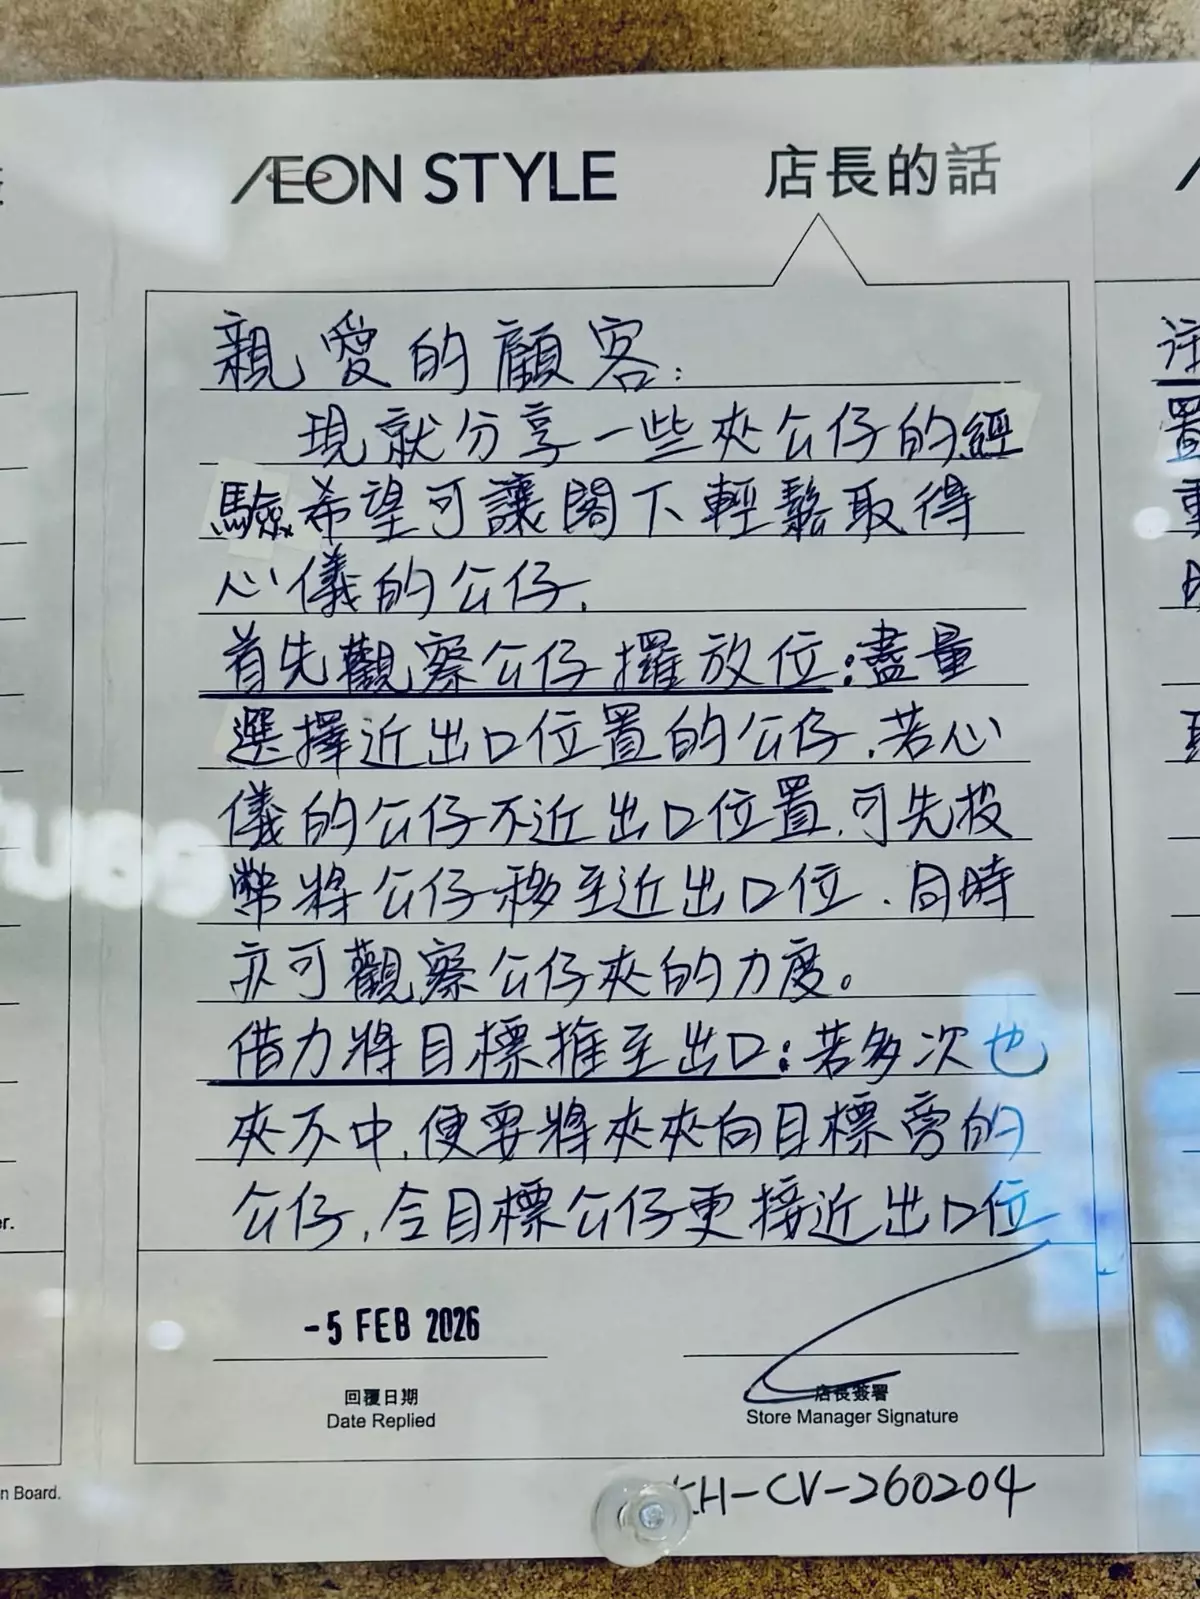 ÆON STYLE
店長的話
親愛的顧客:
現就分享一些夾公仔的經
驗希望可讓閣下輕鬆取得
心儀的公仔.
首先觀察公仔擺放位:盡量
選擇近出口位置的公仔.若心
儀的公仔不近出口位置.可先投
幣將公仔移至近出口位.同時
亦可觀察公仔夾的力度。
借力將目標推至出口:若多次也
夾不中.便要將夾夾向目標旁的
公仔.令目標公仔更接近出口位
-5 FEB 2026
回覆日期
Date Replied
店長簽署
Store Manager Signature
KH-CV-260204
er.
n Board.
注
置
重